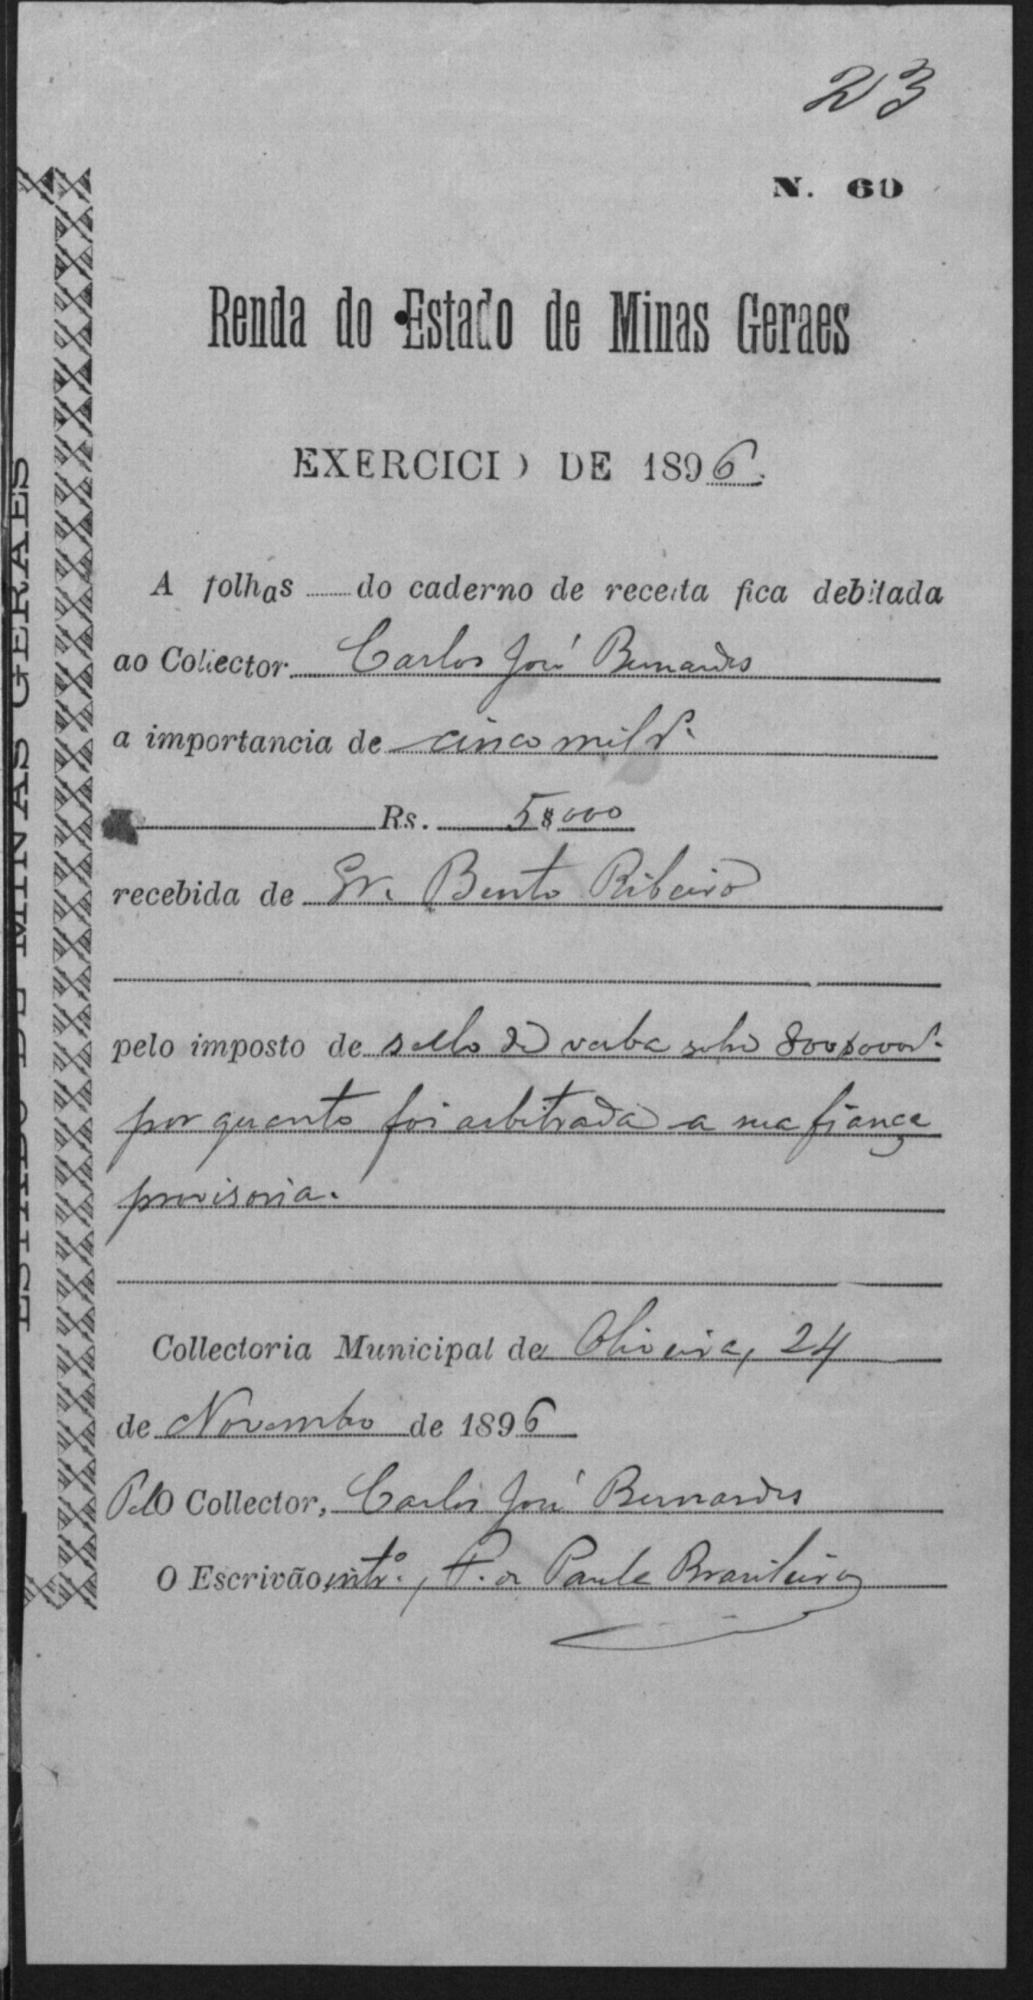 23
N. 60
Renda do Estado de Minas Geraes
EXERCICIO DE 1896.
A folhas ...... do caderno de receita fica debitada
ao Collector Carlos José Bernardes
a importancia de cinco mil rs.
Rs. 5$000
recebida de Bento Ribeiro
pelo imposto de sello de verba sobre 800$000rs.
por quanto foi arbitrada a sua fiança
provisoria.
Collectoria Municipal de Oliveira, 24
de Novembro de 1896
Pelo Collector, Carlos José Bernardes
O Escrivão intº., F. de Paula Brasileiro
ESTADO DE MINAS GERAES